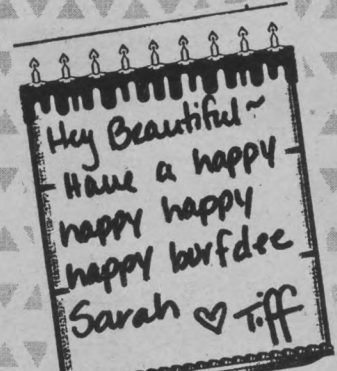 Hey Beautiful~
Have a happy
happy happy
happy burfdee
Sarah ♡ Tiff